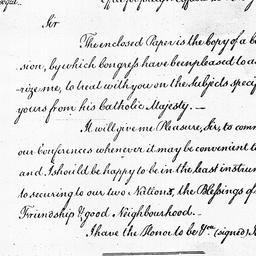 Sir
The enclosed Paper is the copy of a co
sion, by which Congress have been pleased to a
rize me, to treat with you on the Subjects speci
yours from his Catholic Majesty. —
It will give me Pleasure, Sir, to comm
our Conferences whenever it may be convenient t
and I should be happy to be in the least instrum
to securing to our two Nations, the Blessings of
Friendship & good Neighbourhood. —
I have the Honor to be &ca (signed) J